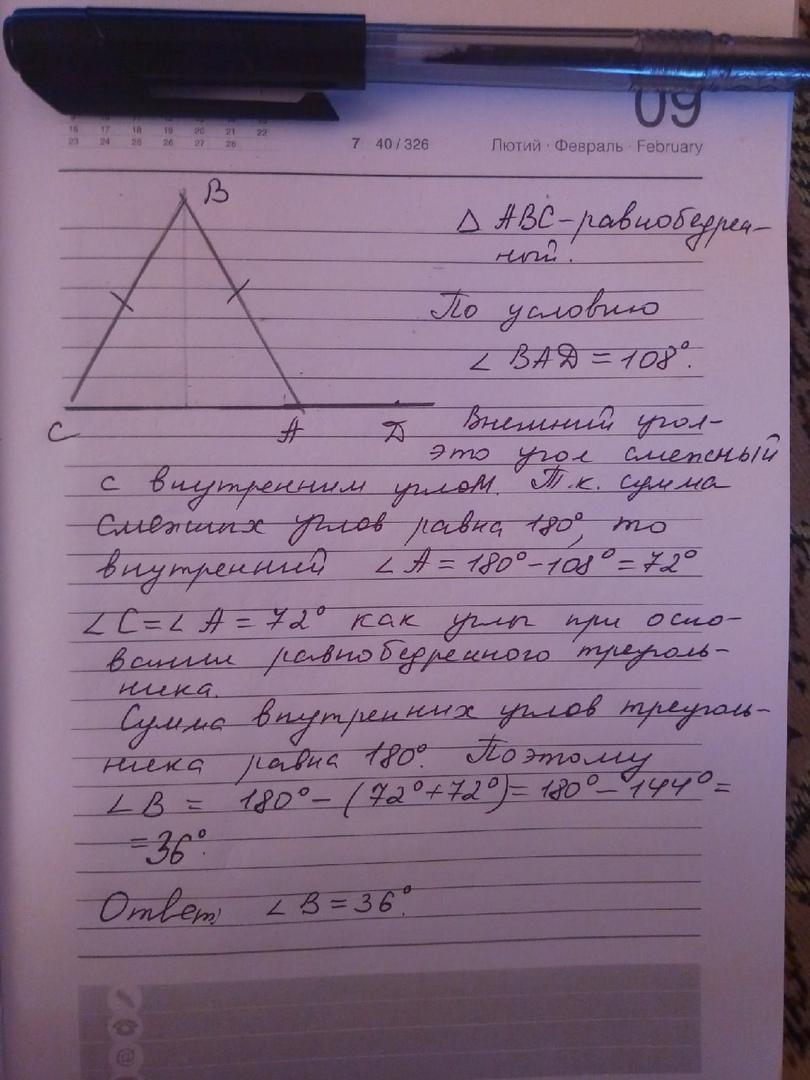 09
16 17 18 19 20 21 22
23 24 25 26 27 28
7 40 / 326
Лютий · Февраль · February
B
C
A
D
Δ ABC – равнобедрен-
ный.
По условию
∠ BAD = 108°.
Внешний угол-
это угол смежный
с внутренним углом. Т.к. сумма
смежных углов равна 180°, то
внутренний ∠ A = 180° – 108° = 72°
∠ C = ∠ A = 72° как углы при осно-
вании равнобедренного треуголь-
ника.
Сумма внутренних углов треуголь-
ника равна 180°. Поэтому
∠ B = 180° – (72° + 72°) = 180° – 144° =
= 36°.
Ответ: ∠ B = 36°.